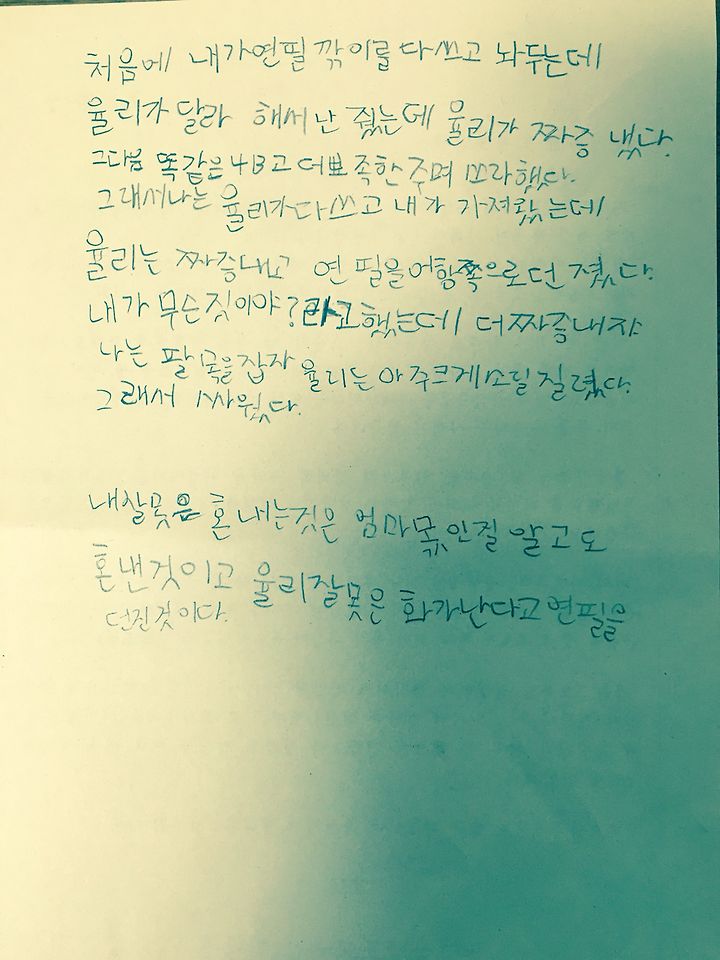 처음에 내가연필 깎이를 다쓰고 놔두는데
율리가 달라 해서 난 줬는데 율리가 짜증 냈다.
그다음 똑같은 4B고 더뾰족한 주며 쓰라했다.
그래서나는 율리가다쓰고 내가 가져왔는데
율리는 짜증내고 연필을어항쪽으로던졌다.
내가 무슨짓이야? 라고했는데 더짜증내자
나는 팔목을잡자 율리는아주크게소릴질렸다.
그래서 싸웠다.
내잘못은 혼내는것은 엄마몫인질 알고도
혼낸것이고 율리잘못은 화가난다고연필을
던진것이다.